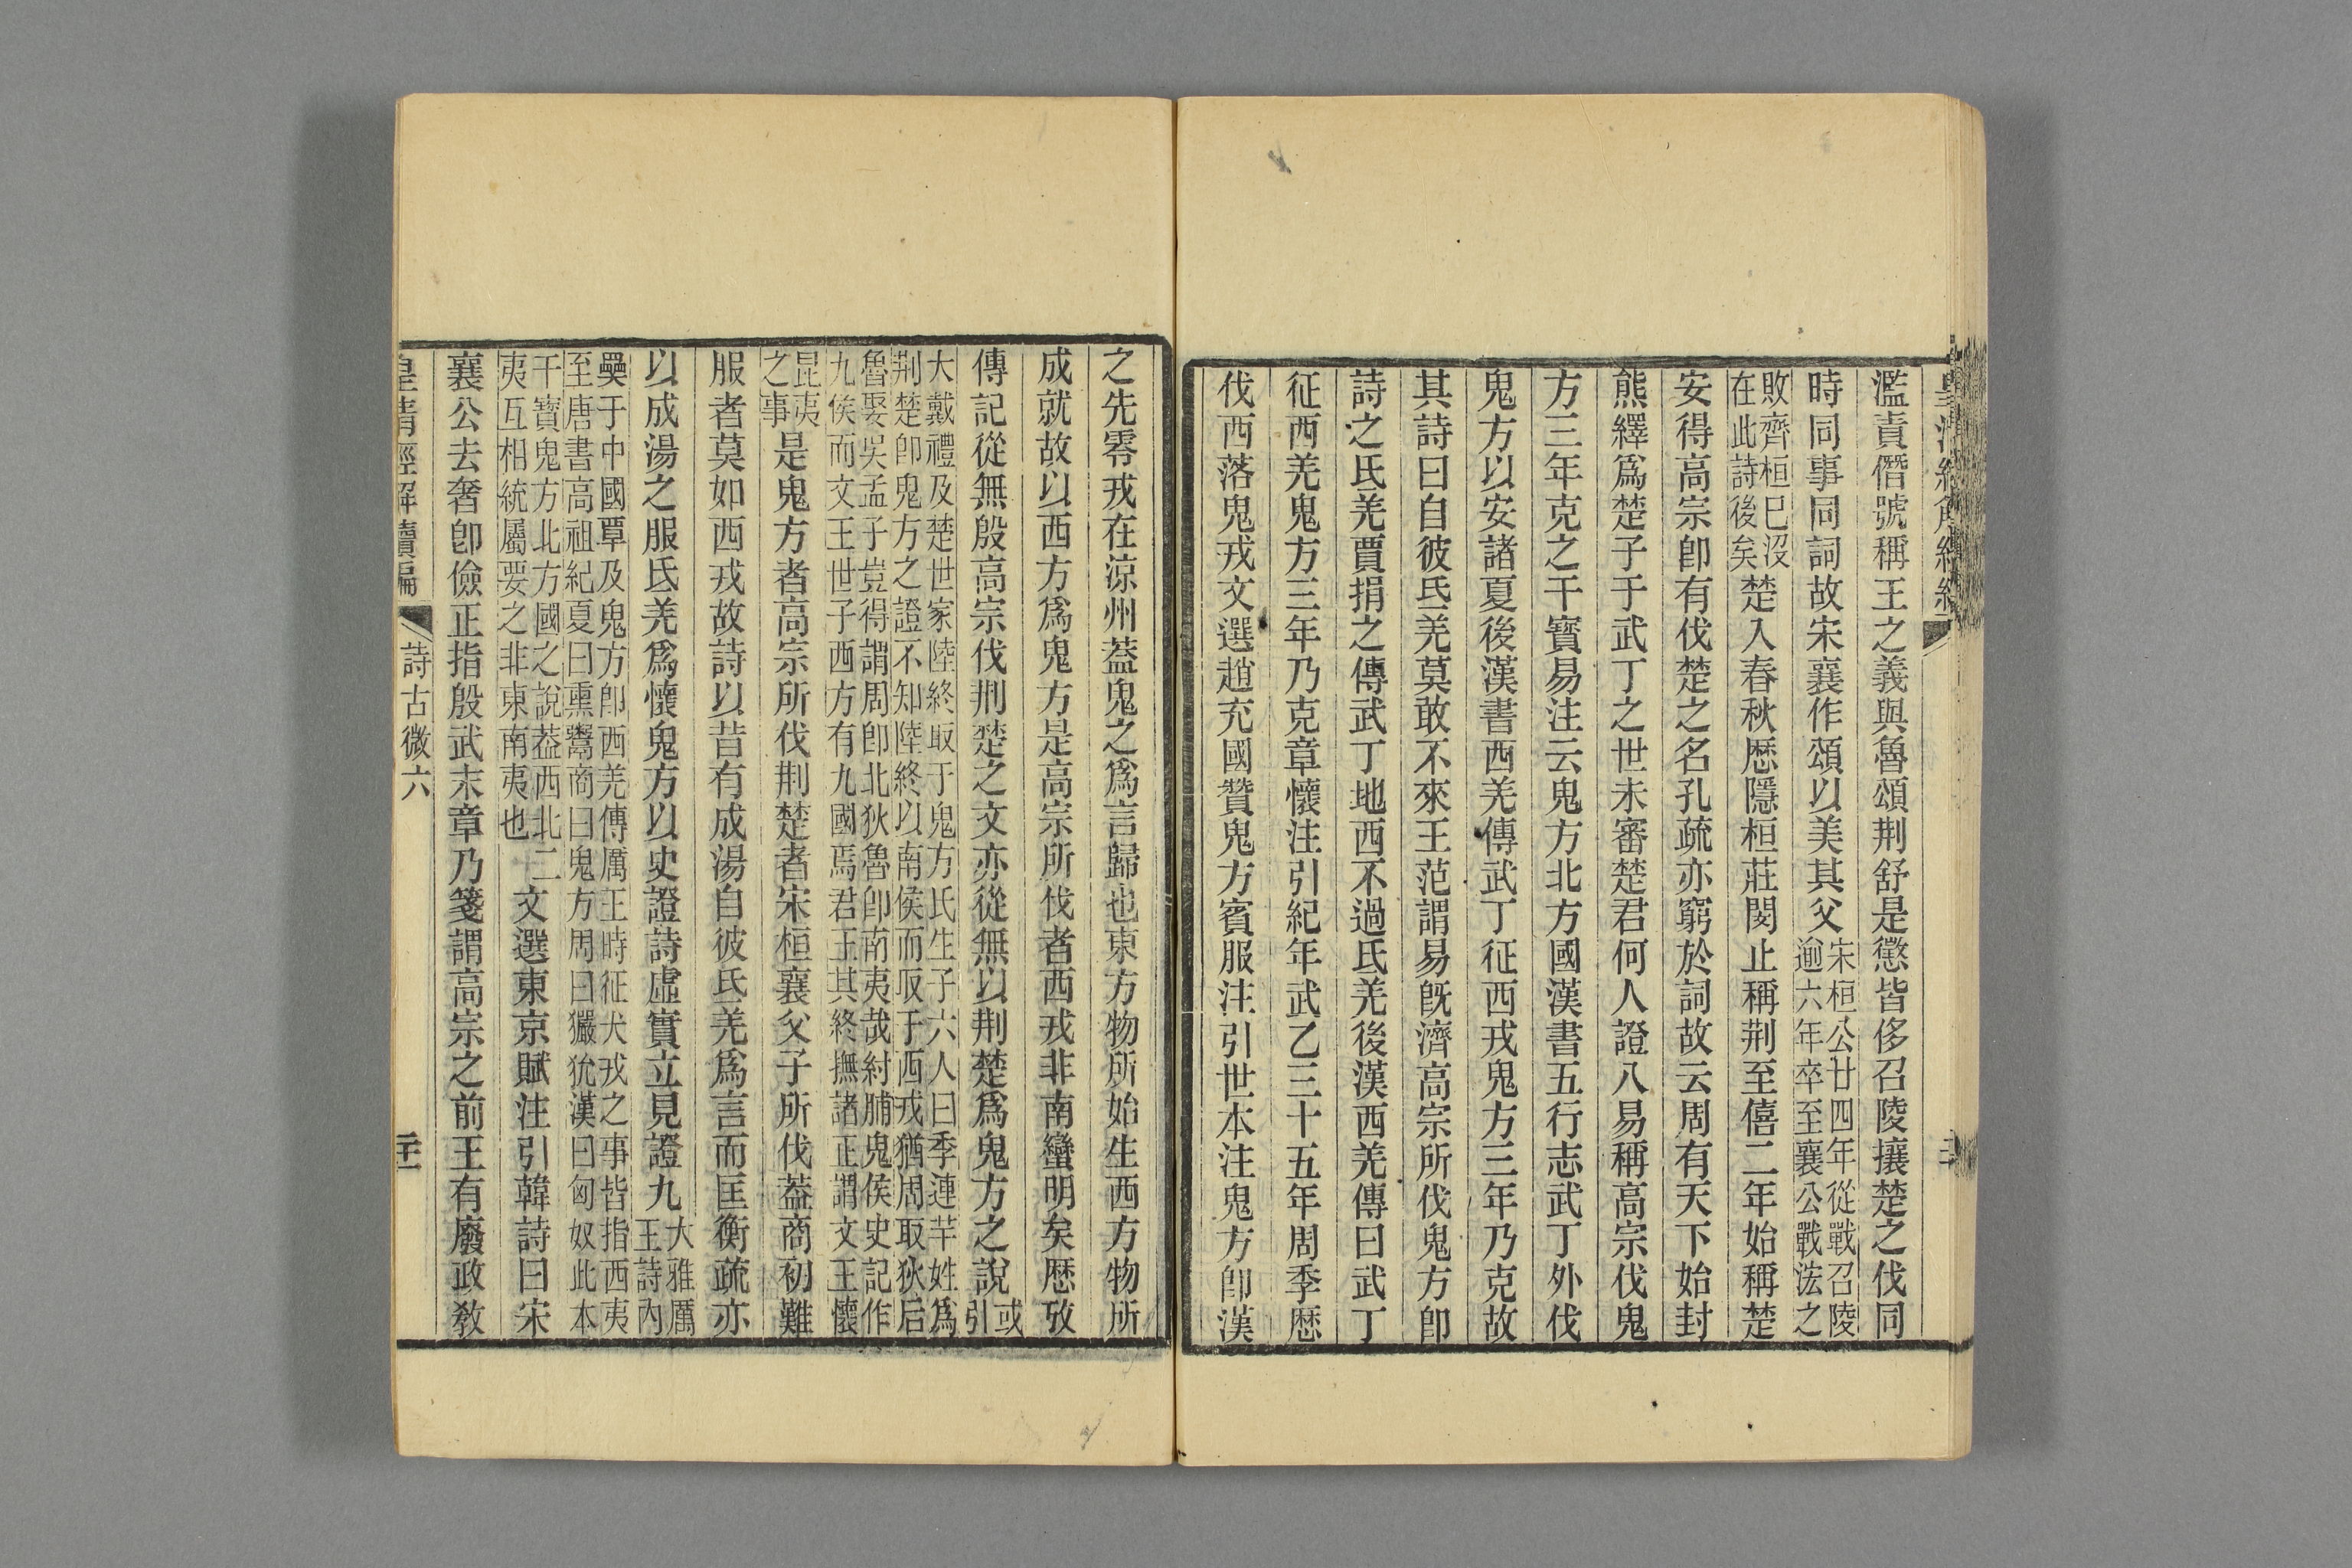 濫責僭號稱王之義與魯頌荆舒是懲皆侈召陵攘楚之伐同
時同事同詞故宋襄作頌以美其父
宋桓公廿四年從戰召陵
逾六年卒至襄公戰泓之
敗齊桓巳沒
在此詩後矣
楚入春秋厯隱桓莊閔止稱荆至僖二年始稱楚
安得高宗卽有伐楚之名孔疏亦窮於詞故云周有天下始封
熊繹爲楚子于武丁之世未審楚君何人證八易稱高宗伐鬼
方三年克之干寶易注云鬼方北方國漢書五行志武丁外伐
鬼方以安諸夏後漢書西羌傳武丁征西戎鬼方三年乃克故
其詩曰自彼氐羌莫敢不來王范謂易旣濟高宗所伐鬼方卽
詩之氐羌賈捐之傳武丁地西不過氐羌後漢西羌傳曰武丁
征西羌鬼方三年乃克章懷注引紀年武乙三十五年周季歴
伐西落鬼戎文選趙充國贊鬼方賓服注引世本注鬼方卽漢
之先零戎在涼州葢鬼之爲言歸也東方物所始生西方物所
成就故以西方爲鬼方是高宗所伐者西戎非南蠻明矣厯攷
傳記從無殷高宗伐荆楚之文亦從無以荆楚爲鬼方之說
或
引
大戴禮及楚世家陸終取于鬼方氏生子六人曰季連芉姓爲
荆楚卽鬼方之證不知陸終以南侯而取于西戎猶周取狄后
魯娶吳孟子豈得謂周卽北狄魯卽南夷哉紂脯鬼侯史記作
九侯而文王世子西方有九國焉君王其終撫諸正謂文王懷
昆夷
之事
是鬼方者高宗所伐荆楚者宋桓襄父子所伐葢商初難
服者莫如西戎故詩以昔有成湯自彼氐羌爲言而匡衡疏亦
以成湯之服氐羌爲懷鬼方以史證詩虛實立見證九
大雅厲
王詩內
奰于中國覃及鬼方卽西羌傳厲王時征犬戎之事皆指西夷
至唐書高祖紀夏曰熏鬻商曰鬼方周曰玁狁漢曰匈奴此本
干寶鬼方北方國之說葢西北二
夷互相統屬要之非東南夷也
文選東京賦注引韓詩曰宋
襄公去奢卽儉正指殷武末章乃箋謂高宗之前王有廢政教
皇清經解續編
詩古微六